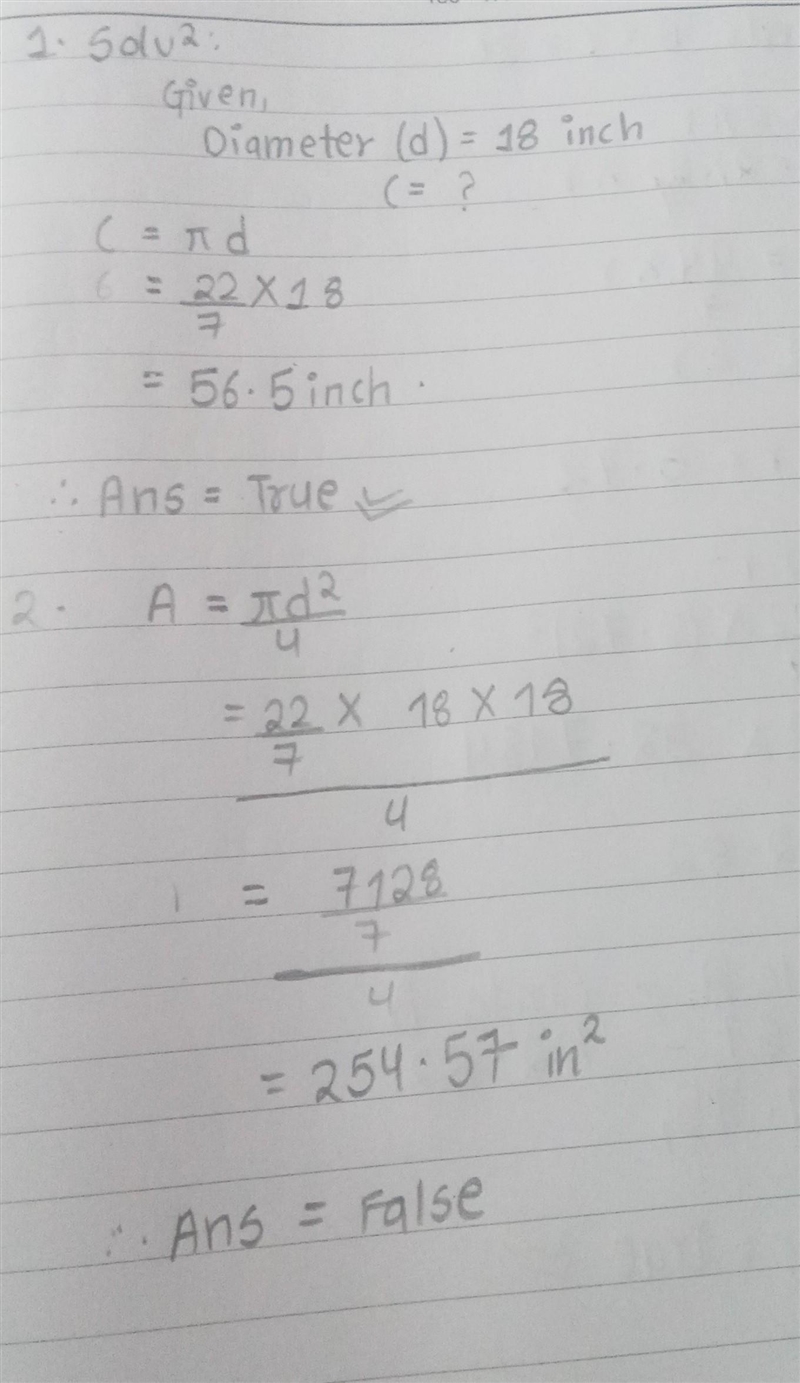 1. Solv²:
Given,
Diameter (d) = 18 inch
C = ?
C = πd
= 22/7 × 18
= 56.5 inch.
∴ Ans = True
2. A = πd²/4
= 22/7 × 18 × 18
4
= 7128/7
4
= 254.57 in²
∴ Ans = False